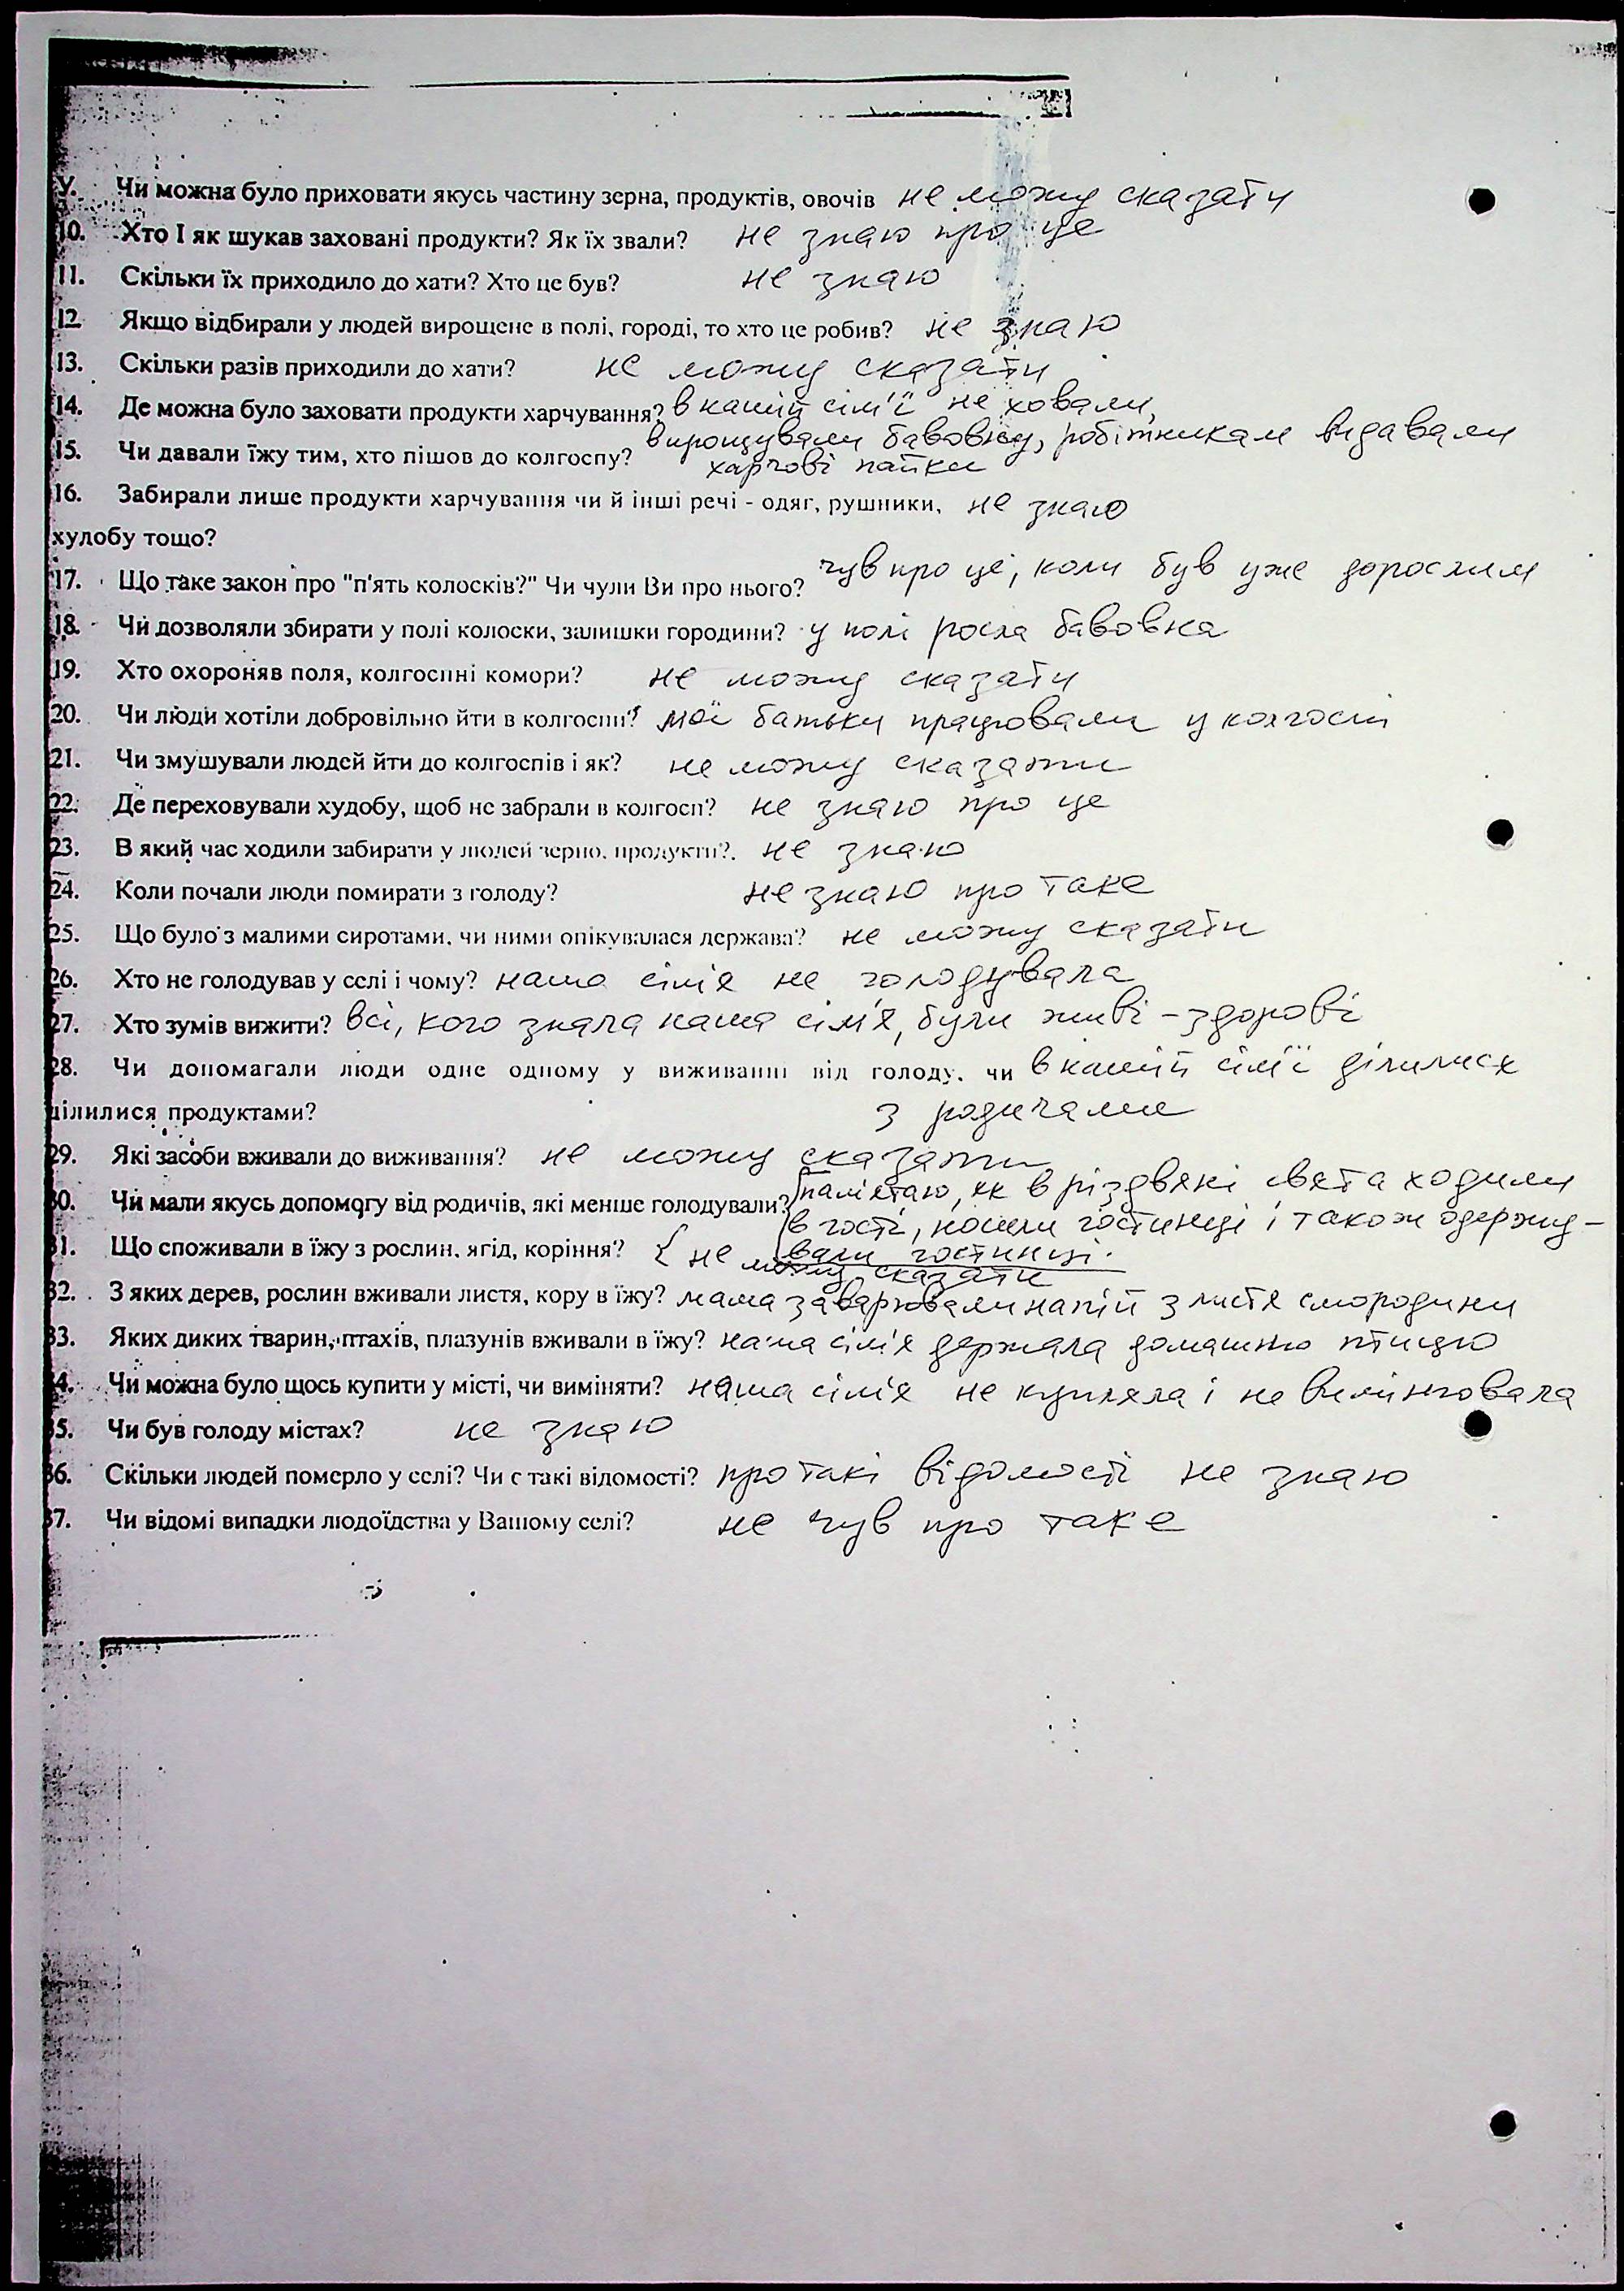 9. Чи можна було приховати якусь частину зерна, продуктів, овочів не можу сказати
10. Хто І як шукав заховані продукти? Як їх звали? не знаю про це
11. Скільки їх приходило до хати? Хто це був? не знаю
12. Якщо відбирали у людей вирощене в полі, городі, то хто це робив? не знаю
13. Скільки разів приходили до хати? не можу сказати
14. Де можна було заховати продукти харчування? в нашій сім'ї не ховали,
15. Чи давали їжу тим, хто пішов до колгоспу? вирощували бавовну, робітникам видавали
харчові пайки
16. Забирали лише продукти харчування чи й інші речі - одяг, рушники, не знаю
худобу тощо?
17. Що таке закон про "п'ять колосків?" Чи чули Ви про нього? чув про це, коли був уже дорослим
18. Чи дозволяли збирати у полі колоски, залишки городини? у полі росла бавовна
19. Хто охороняв поля, колгоспні комори? не можу сказати
20. Чи люди хотіли добровільно йти в колгоспи? мої батьки працювали у колгоспі
21. Чи змушували людей йти до колгоспів і як? не можу сказати
22. Де переховували худобу, щоб не забрали в колгосп? не знаю про це
23. В який час ходили забирати у людей зерно, продукти?. не знаю
24. Коли почали люди помирати з голоду? не знаю про таке
25. Що було з малими сиротами, чи ними опікувалася держава? не можу сказати
26. Хто не голодував у селі і чому? наша сім'я не голодувала
27. Хто зумів вижити? всі, кого знала наша сім'я, були живі - здорові
28. Чи допомагали люди одне одному у виживанні від голоду, чи в нашій сім'ї ділилися
ділилися продуктами? з родичами
29. Які засоби вживали до виживання? не можу сказати
30. Чи мали якусь допомогу від родичів, які менше голодували? пам'ятаю, як в різдвяні свята ходили
в гості, носили гостинці і також одержу-
вали гостинці.
31. Що споживали в їжу з рослин, ягід, коріння? не можу сказати
32. З яких дерев, рослин вживали листя, кору в їжу? мама заварювали напій з листя смородини
33. Яких диких тварин, птахів, плазунів вживали в їжу? наша сім'я держала домашню птицю
34. Чи можна було щось купити у місті, чи виміняти? наша сім'я не купляла і не вимінювала
35. Чи був голод у містах? не знаю
36. Скільки людей померло у селі? Чи є такі відомості? про такі відомості не знаю
37. Чи відомі випадки людоїдства у Вашому селі? не чув про таке